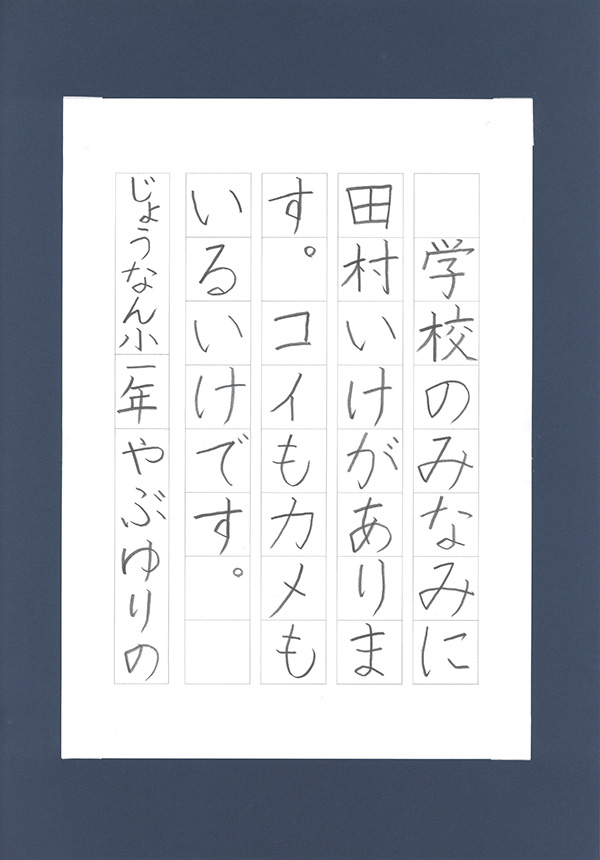 学校のみなみに
田村いけがありま
す。コイもカメも
いるいけです。
じょうなん小一年やぶゆりの